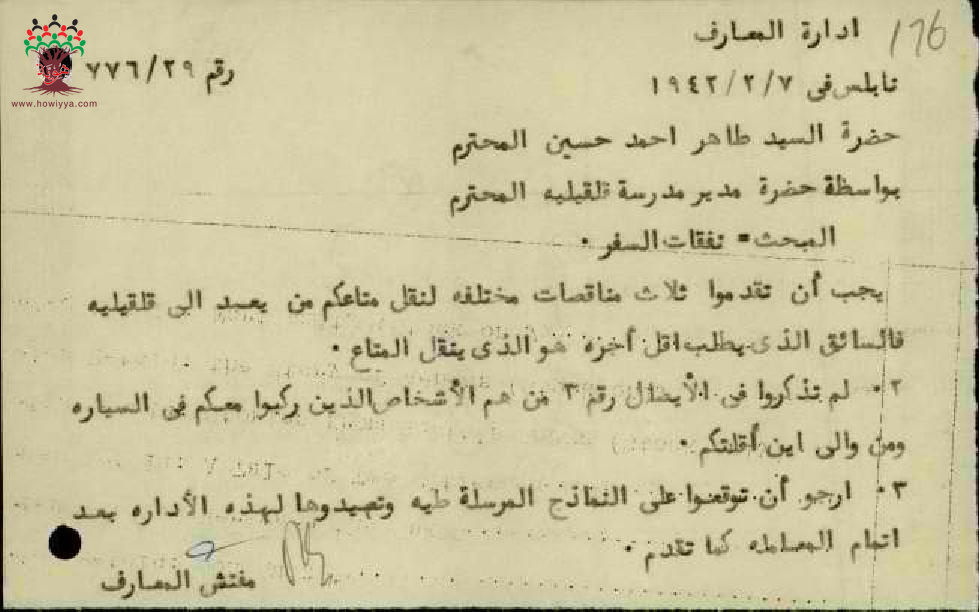 176
ادارة المعارف
رقم ٧٧٦/٢٩
www.howiyya.com
نابلس فى ٧/٢/١٩٤٢
حضرة السيد طاهر احمد حسين المحترم
بواسطة حضرة مدير مدرسة قلقيليه المحترم
المبحث= نفقات السفر ٠
يجب أن تقدموا ثلاث مناقصات مختلفه لنقل متاعكم من يعبد الى قلقيليه
فالسائق الذى يطلب اقل أجره هو الذى ينقل المتاع ٠
٢٠ لم تذكروا فى الأيصال رقم ٣ من هم الأشخاص الذين ركبوا معكم فى السياره
ومن والى اين أقلتكم ٠
٣٠ ارجو أن توقعوا على النماذج المرسلة طيه وتعيدوها لهذه الأداره بعد
اتمام المعامله كما تقدم ٠
مفتش المعارف